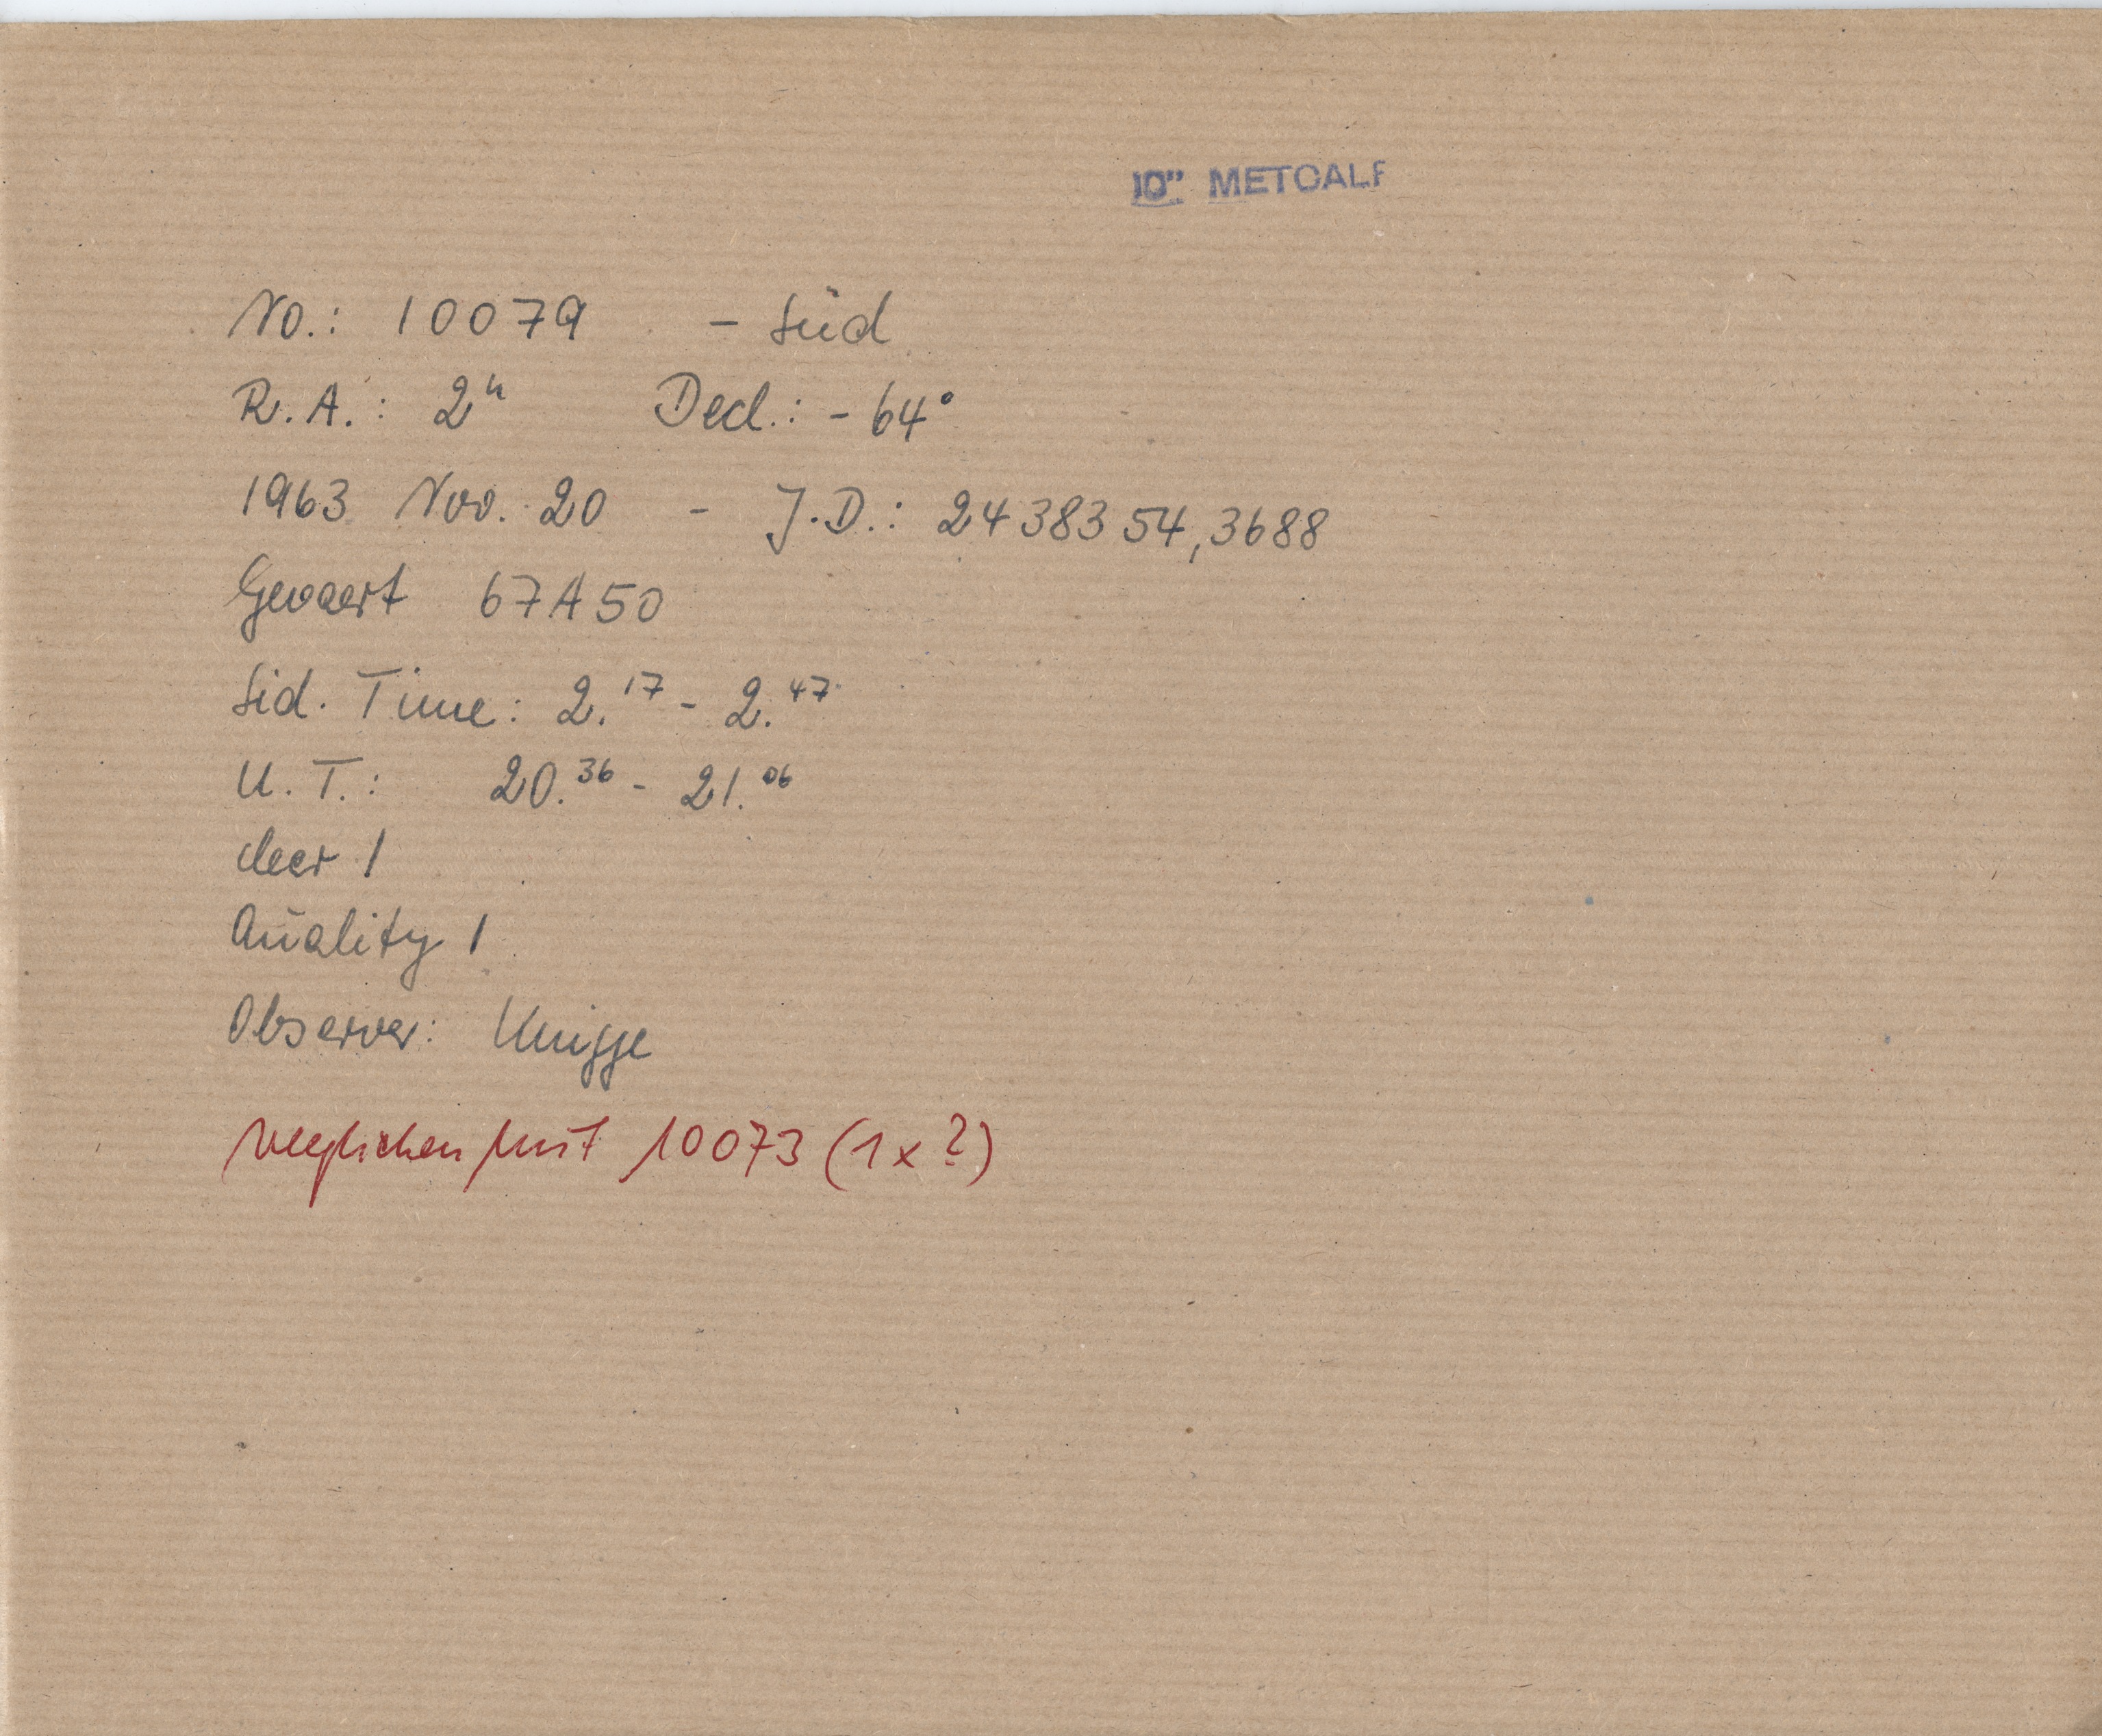 10" METCALF
No.: 10079 - Süd
R.A.: 2ʰ Decl.: - 64°
1963 Nov. 20 - J.D.: 24 383 54,3688
Gevaert 67A50
Sid. Time: 2.¹⁷ - 2.⁴⁷
U.T.: 20.³⁶ - 21.⁰⁶
clear 1
Quality 1
Observer: Knigge
verglichen mit 10073 (1x?)